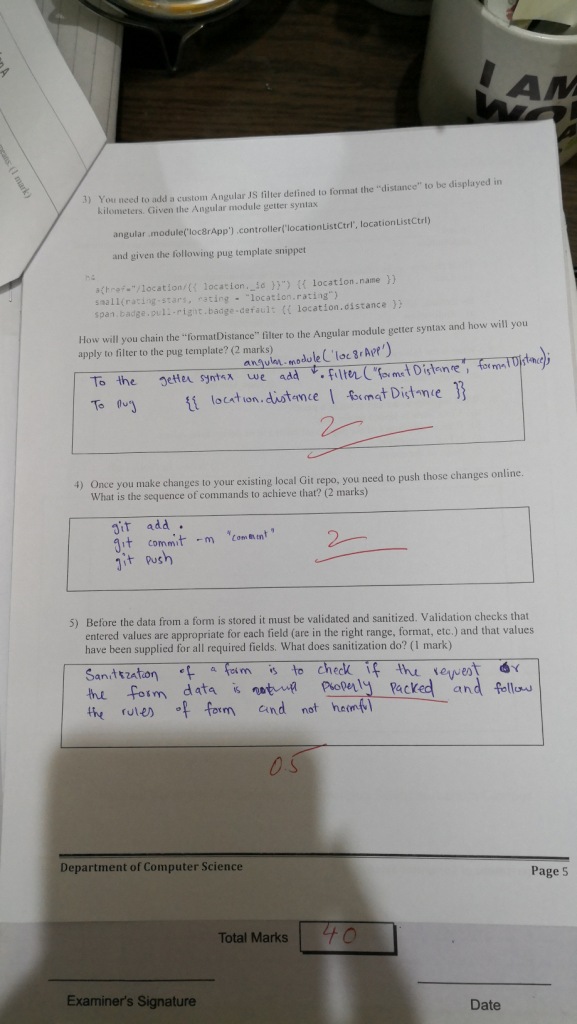 I AM
3) You need to add a custom Angular JS filter defined to format the "distance" to be displayed in
kilometers. Given the Angular module getter syntax
angular.module('loc8rApp').controller('locationListCtrl', locationListCtrl)
and given the following pug template snippet
a(href="/location/{{ location._id }}") {{ location.name }}
small(rating-stars, rating = "location.rating")
span.badge.pull-right.badge-default {{ location.distance }}
How will you chain the "formatDistance" filter to the Angular module getter syntax and how will you
apply to filter to the pug template? (2 marks)
angular.module('loc8rApp')
To the getter syntax we add .filter("formatDistance", formatDistance);
To Pug {{ location.distance | formatDistance }}
2
4) Once you make changes to your existing local Git repo, you need to push those changes online.
What is the sequence of commands to achieve that? (2 marks)
git add .
git commit -m "comment"
git push
2
5) Before the data from a form is stored it must be validated and sanitized. Validation checks that
entered values are appropriate for each field (are in the right range, format, etc.) and that values
have been supplied for all required fields. What does sanitization do? (1 mark)
Sanitization of a form is to check if the request or
the form data is properly packed and follow
the rules of form and not harmful
0.5
Department of Computer Science
Page 5
Total Marks 40
Examiner's Signature
Date